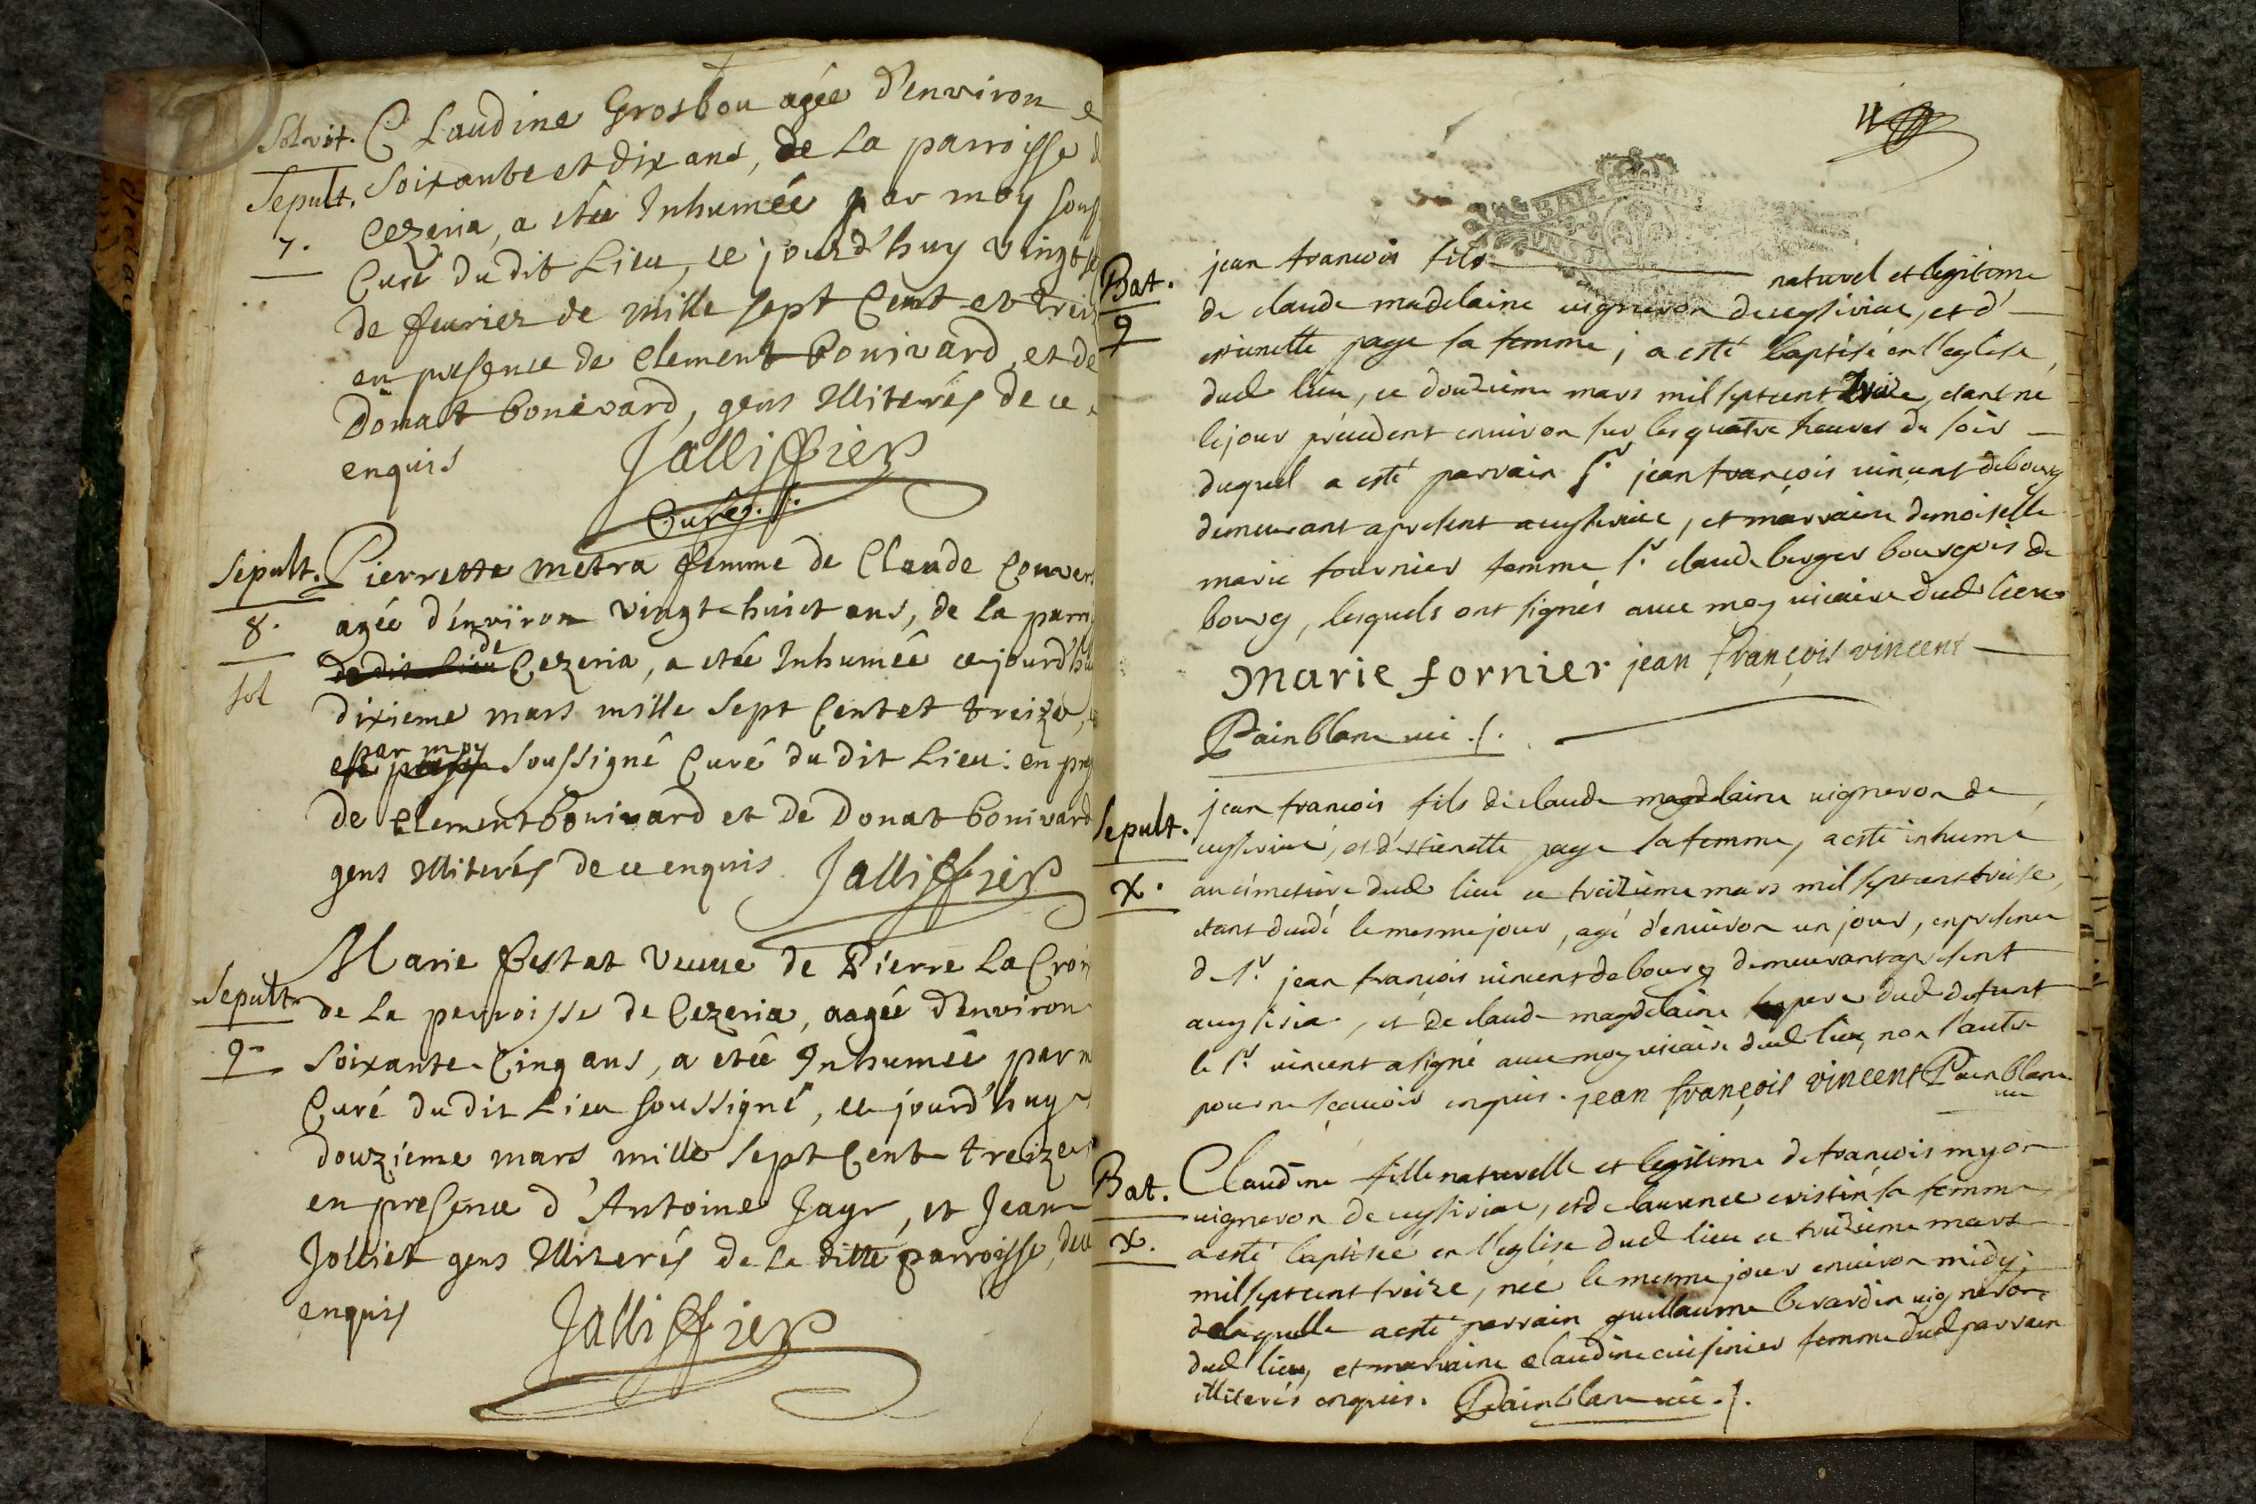 Solvit.
Sepult.
7.
Claudine Grosbou agée d'environ
Soixante et dix ans, de La parroisse
Cezeria, a etée Inhumée par moy sous
Curé du dit Lieu, ce jourd'huy vingt
de feurier de mille sept Cent et treiz
en presence de Clement bonivard, et de
Donat bonivard, gens Illiterés de ce
enquis Jalliffier
Curé
Sepult.
8.
sol
Pierrette metra femme de Claude Conver
agée d'environ vingt-huict ans, de La parr
de dit Lieu de Cezeria, a etée Inhumée ce jourd'hu
dixieme mars mille Sept Cent et treize,
par moy soussigné Curé du dit Lieu: en pre
de Clement bonivard et de Donat bonivard
gens Illiterés de ce enquis Jalliffier
Sepult
9
Marie festat veuve de Pierre La Croix
de La parroisse de Cezeria, aagée d'environ
soixante-Cinq ans, a etée Inhumée par m
Curé du dit Lieu soussigné, ce jourd'huy
douzieme mars mille sept Cent treize
en presence d'Antoine Jayr, et Jean
Jolliet gens Illiterés de La ditte parroisse, de ce
enquis Jalliffier
Bat.
9
jean francois fils naturel et legitime
de claude madelaine vigneron de ceysiriac, et d'
estienette page sa femme, a esté baptisé en l'eglise
dud lieu, ce douzième mars mil septcent treize, etant né
le jour précedent environ sur les quatre heures du soir
duquel a esté parrain sr. jean françois vincent de bourg
demeurant apresent a ceysiriac, et marraine demoiselle
marie fournier femme sr. claude berger bourgeois de
bourg, lesquels ont signés avec moy vicaire dud lieu
Marie fornier jean françois vincent
Painblanc vic.
Sepult.
x.
jean francois fils de claude magdelaine vigneron de
ceysiriac, et d'estienette page sa femme, a esté inhumé
au cimetière dud lieu ce treizième mars mil septcent treise,
etant decedé le mesme jour, agé d'environ un jour, en presence
de sr. jean françois vincent de bourg demeurant apresent
a ceysiria, et de claude magdelaine pere dud defunt
le sr. vincent a signé avec moy vicaire dud lieu, non l'autre
pour ne sçavoir enquis. jean françois vincent Painblanc
vic
Bat.
x.
Claudine fille naturelle et legitime de francois myon
vigneron de ceysiriac, et de laurence cristin sa femme
a esté baptisée en l'eglise dud lieu ce treizième mars
mil septcent treize, née le mesme jour environ midy,
de laquelle a esté parrain guillaume berardin vigneron
dud lieu, et marraine claudine cuisinier femme dud parrain
illiterés enquis. Painblanc vic.